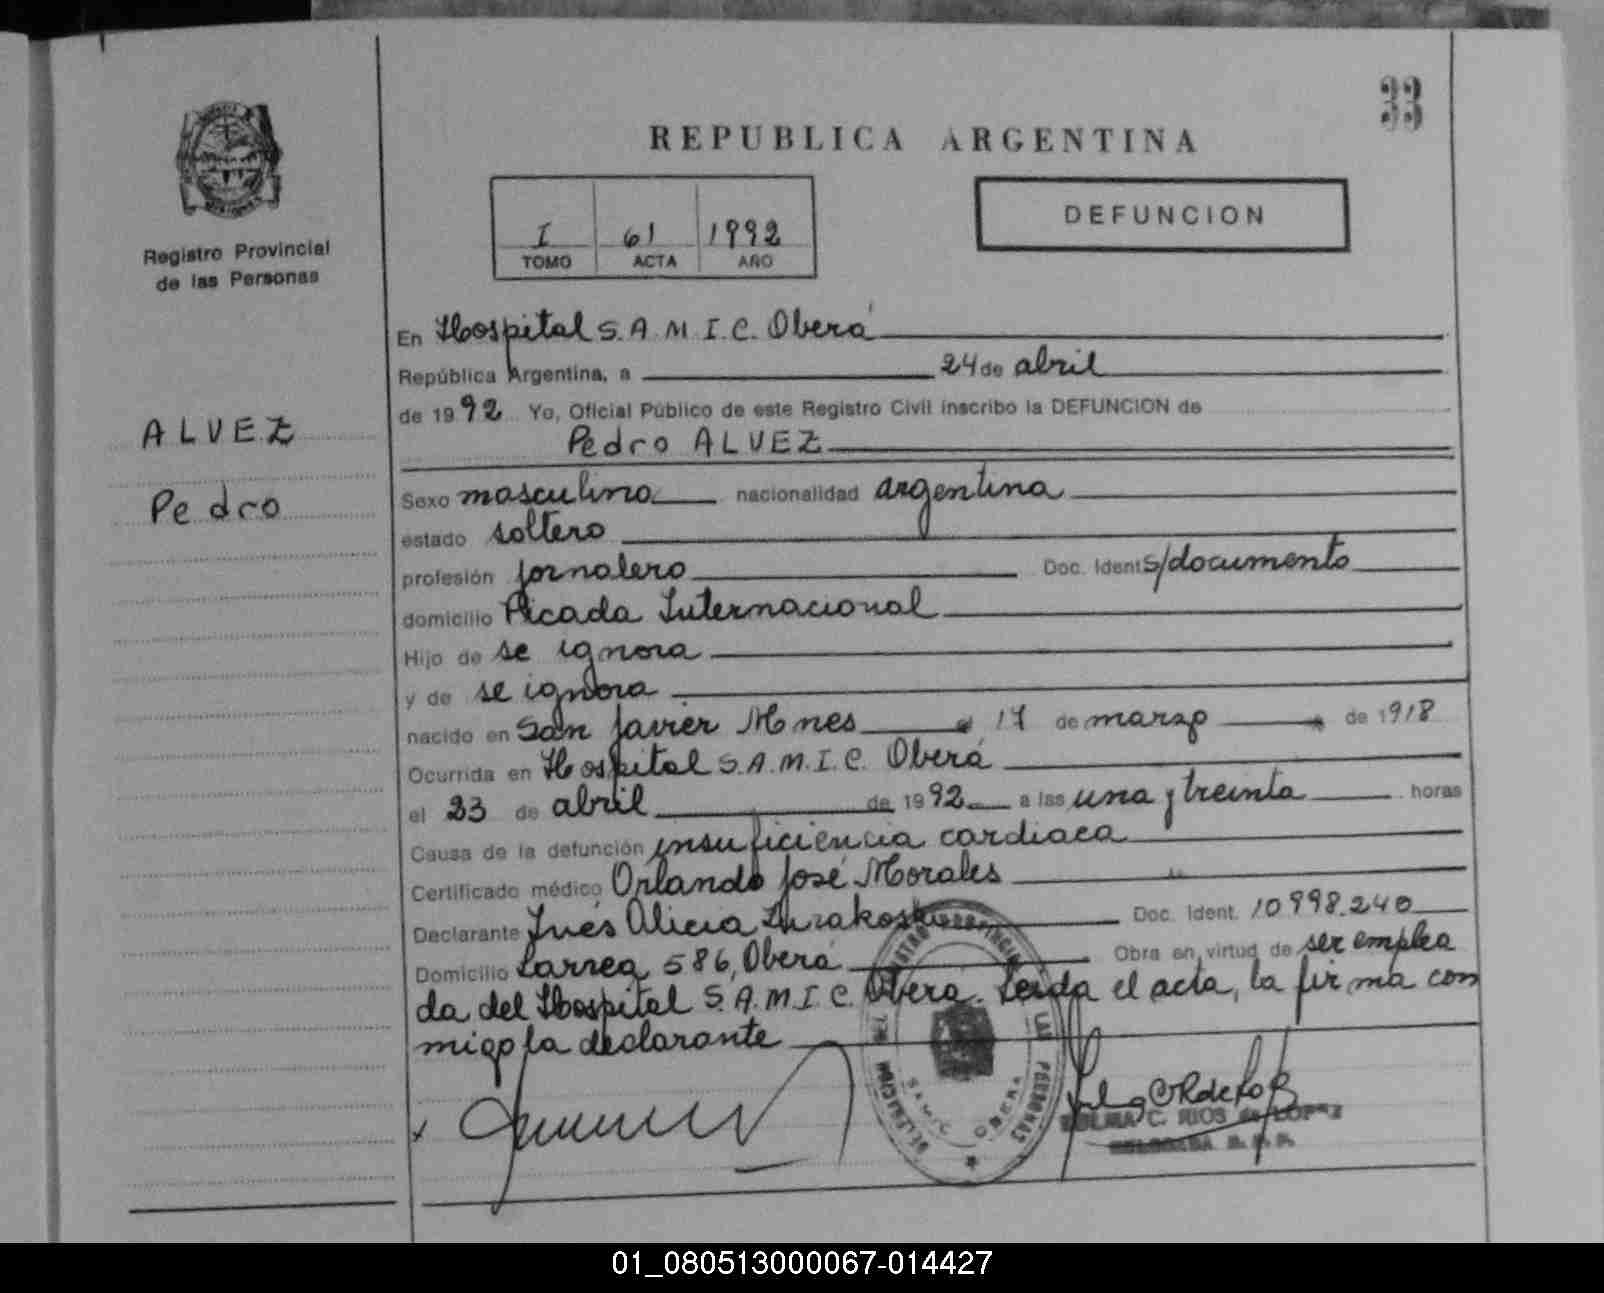 33
REPUBLICA ARGENTINA
Registro Provincial
de las Personas
I 61 1992
TOMO ACTA AÑO
DEFUNCION
ALVEZ
Pedro
En Hospital S.A.M.I.C. Oberá
República Argentina, a 24 de abril
de 1992 Yo, Oficial Público de este Registro Civil inscribo la DEFUNCION de
Pedro ALVEZ
Sexo masculino nacionalidad argentina
estado soltero
profesión jornalero Doc. Ident. S/documento
domicilio Picada Internacional
Hijo de se ignora
y de se ignora
nacido en San Javier Mnes 17 de marzo de 1918
Ocurrida en Hospital S.A.M.I.C. Oberá
el 23 de abril de 1992 a las una y treinta horas
Causa de la defunción insuficiencia cardiaca
Certificado médico Orlando José Morales
Declarante Inés Alicia Doc. Ident. 10998.240
Domicilio Larrea 586, Oberá Obra en virtud de ser emplea
da del Hospital S.A.M.I.C. Oberá. Leida el acta, la firma con
migo la declarante
DELEGACION DEL REGISTRO PROVINCIAL DE LAS PERSONAS
SAMIC OBERA
C. RIOS de LOPEZ
DELEGADA R. P. P.
01_080513000067-014427